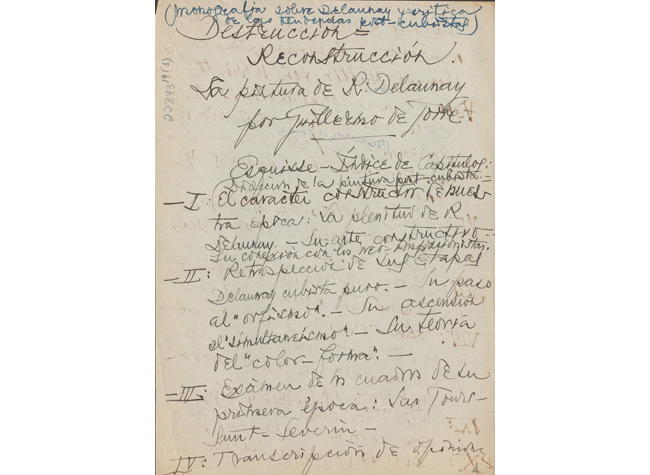 (Monografía sobre Delaunay y crítica
de las tendencias post-cubistas)
Destrucción =
Reconstrucción.
La pintura de R. Delaunay
por Guillermo de Torre
Esquisse - Índice de Capítulos:
Dirección de la pintura post-cubista =
- I: El caracter constructor de nues
tra época: La plenitud de R
Delaunay. - Su arte constructivo -
Su conexión con los neo-impresionistas.
- II: Retrospección de sus Etapas
Delaunay cubista puro. - Su paso
al "orfismo". - Su ascensión
al "simultaneismo". - Su teoría
del "color-forma". -
- III: Exámen de los cuadros de su
primera época: Las Tours-
Saint-Severin -
IV: Transcripción de opiniones